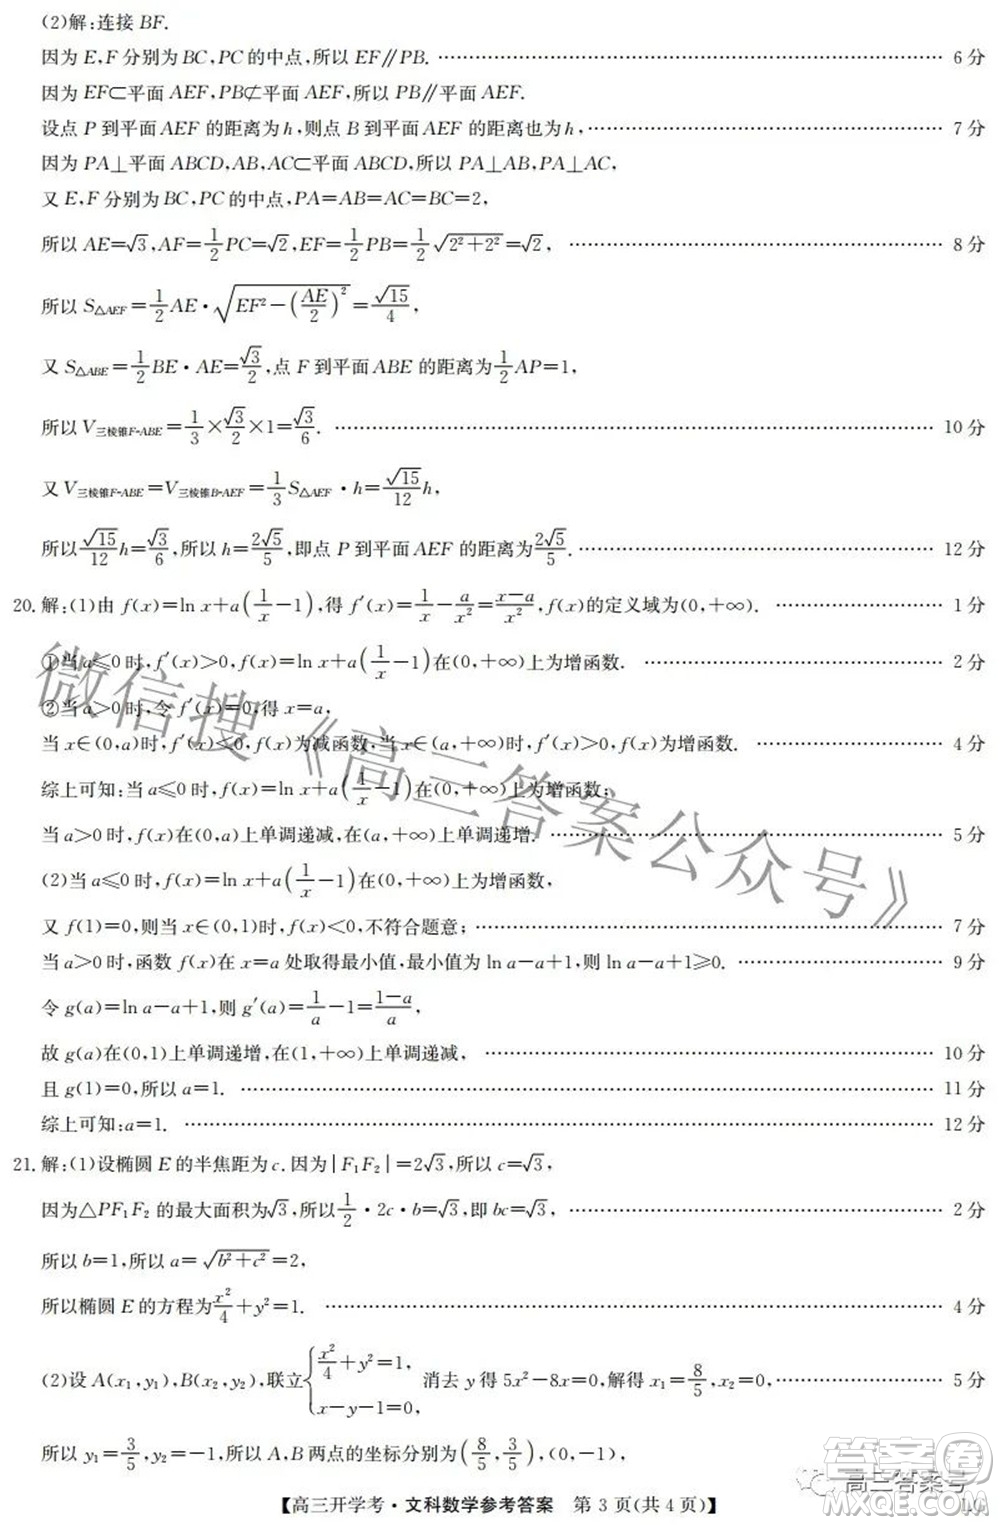 (2)解:连接 BF.
因为 E,F 分别为 BC,PC 的中点,所以 EF∥PB. …… 6 分
因为 EF⊂平面 AEF,PB⊄平面 AEF,所以 PB∥平面 AEF.
设点 P 到平面 AEF 的距离为 h,则点 B 到平面 AEF 的距离也为 h,…… 7 分
因为 PA⊥平面 ABCD,AB,AC⊂平面 ABCD,所以 PA⊥AB,PA⊥AC,
又 E,F 分别为 BC,PC 的中点,PA=AB=AC=BC=2,
所以 AE=√3,AF=1/2 PC=√2,EF=1/2 PB=1/2 √(2²+2²)=√2, …… 8 分
所以 S△AEF=1/2 AE·√(EF²-(AE/2)²)=√15/4,
又 S△ABE=1/2 BE·AE=√3/2,点 F 到平面 ABE 的距离为 1/2 AP=1,
所以 V三棱锥F-ABE=1/3×√3/2×1=√3/6. …… 10 分
又 V三棱锥F-ABE=V三棱锥B-AEF=1/3 S△AEF·h=√15/12 h,
所以 √15/12 h=√3/6,所以 h=2√5/5,即点 P 到平面 AEF 的距离为 2√5/5. …… 12 分
20. 解:(1)由 f(x)=ln x+a(1/x-1),得 f′(x)=1/x-a/x²=(x-a)/x²,f(x)的定义域为(0,+∞). …… 1 分
①当 a≤0 时,f′(x)>0,f(x)=ln x+a(1/x-1)在(0,+∞)上为增函数. …… 2 分
②当 a>0 时,令 f′(x)=0,得 x=a,
当 x∈(0,a)时,f′(x)<0,f(x)为减函数;当 x∈(a,+∞)时,f′(x)>0,f(x)为增函数. …… 4 分
综上可知:当 a≤0 时,f(x)=ln x+a(1/x-1)在(0,+∞)上为增函数;
当 a>0 时,f(x)在(0,a)上单调递减,在(a,+∞)上单调递增. …… 5 分
(2)当 a≤0 时,f(x)=ln x+a(1/x-1)在(0,+∞)上为增函数,
又 f(1)=0,则当 x∈(0,1)时,f(x)<0,不符合题意; …… 7 分
当 a>0 时,函数 f(x)在 x=a 处取得最小值,最小值为 ln a-a+1,则 ln a-a+1≥0. …… 9 分
令 g(a)=ln a-a+1,则 g′(a)=1/a-1=(1-a)/a,
故 g(a)在(0,1)上单调递增,在(1,+∞)上单调递减, …… 10 分
且 g(1)=0,所以 a=1. …… 11 分
综上可知:a=1. …… 12 分
21. 解:(1)设椭圆 E 的半焦距为 c.因为|F₁F₂|=2√3,所以 c=√3,
因为△PF₁F₂ 的最大面积为√3,所以 1/2·2c·b=√3,即 bc=√3, …… 2 分
所以 b=1,所以 a=√(b²+c²)=2,
所以椭圆 E 的方程为 x²/4+y²=1. …… 4 分
(2)设 A(x₁,y₁),B(x₂,y₂),联立{x²/4+y²=1, x-y-1=0, 消去 y 得 5x²-8x=0,解得 x₁=8/5,x₂=0, …… 5 分
所以 y₁=3/5,y₂=-1,所以 A,B 两点的坐标分别为(8/5,3/5),(0,-1),
【高三开学考·文科数学参考答案 第 3 页(共 4 页)】
LG
微信搜《高三答案公众号》
高三答案号
答案卷
MXQE.COM